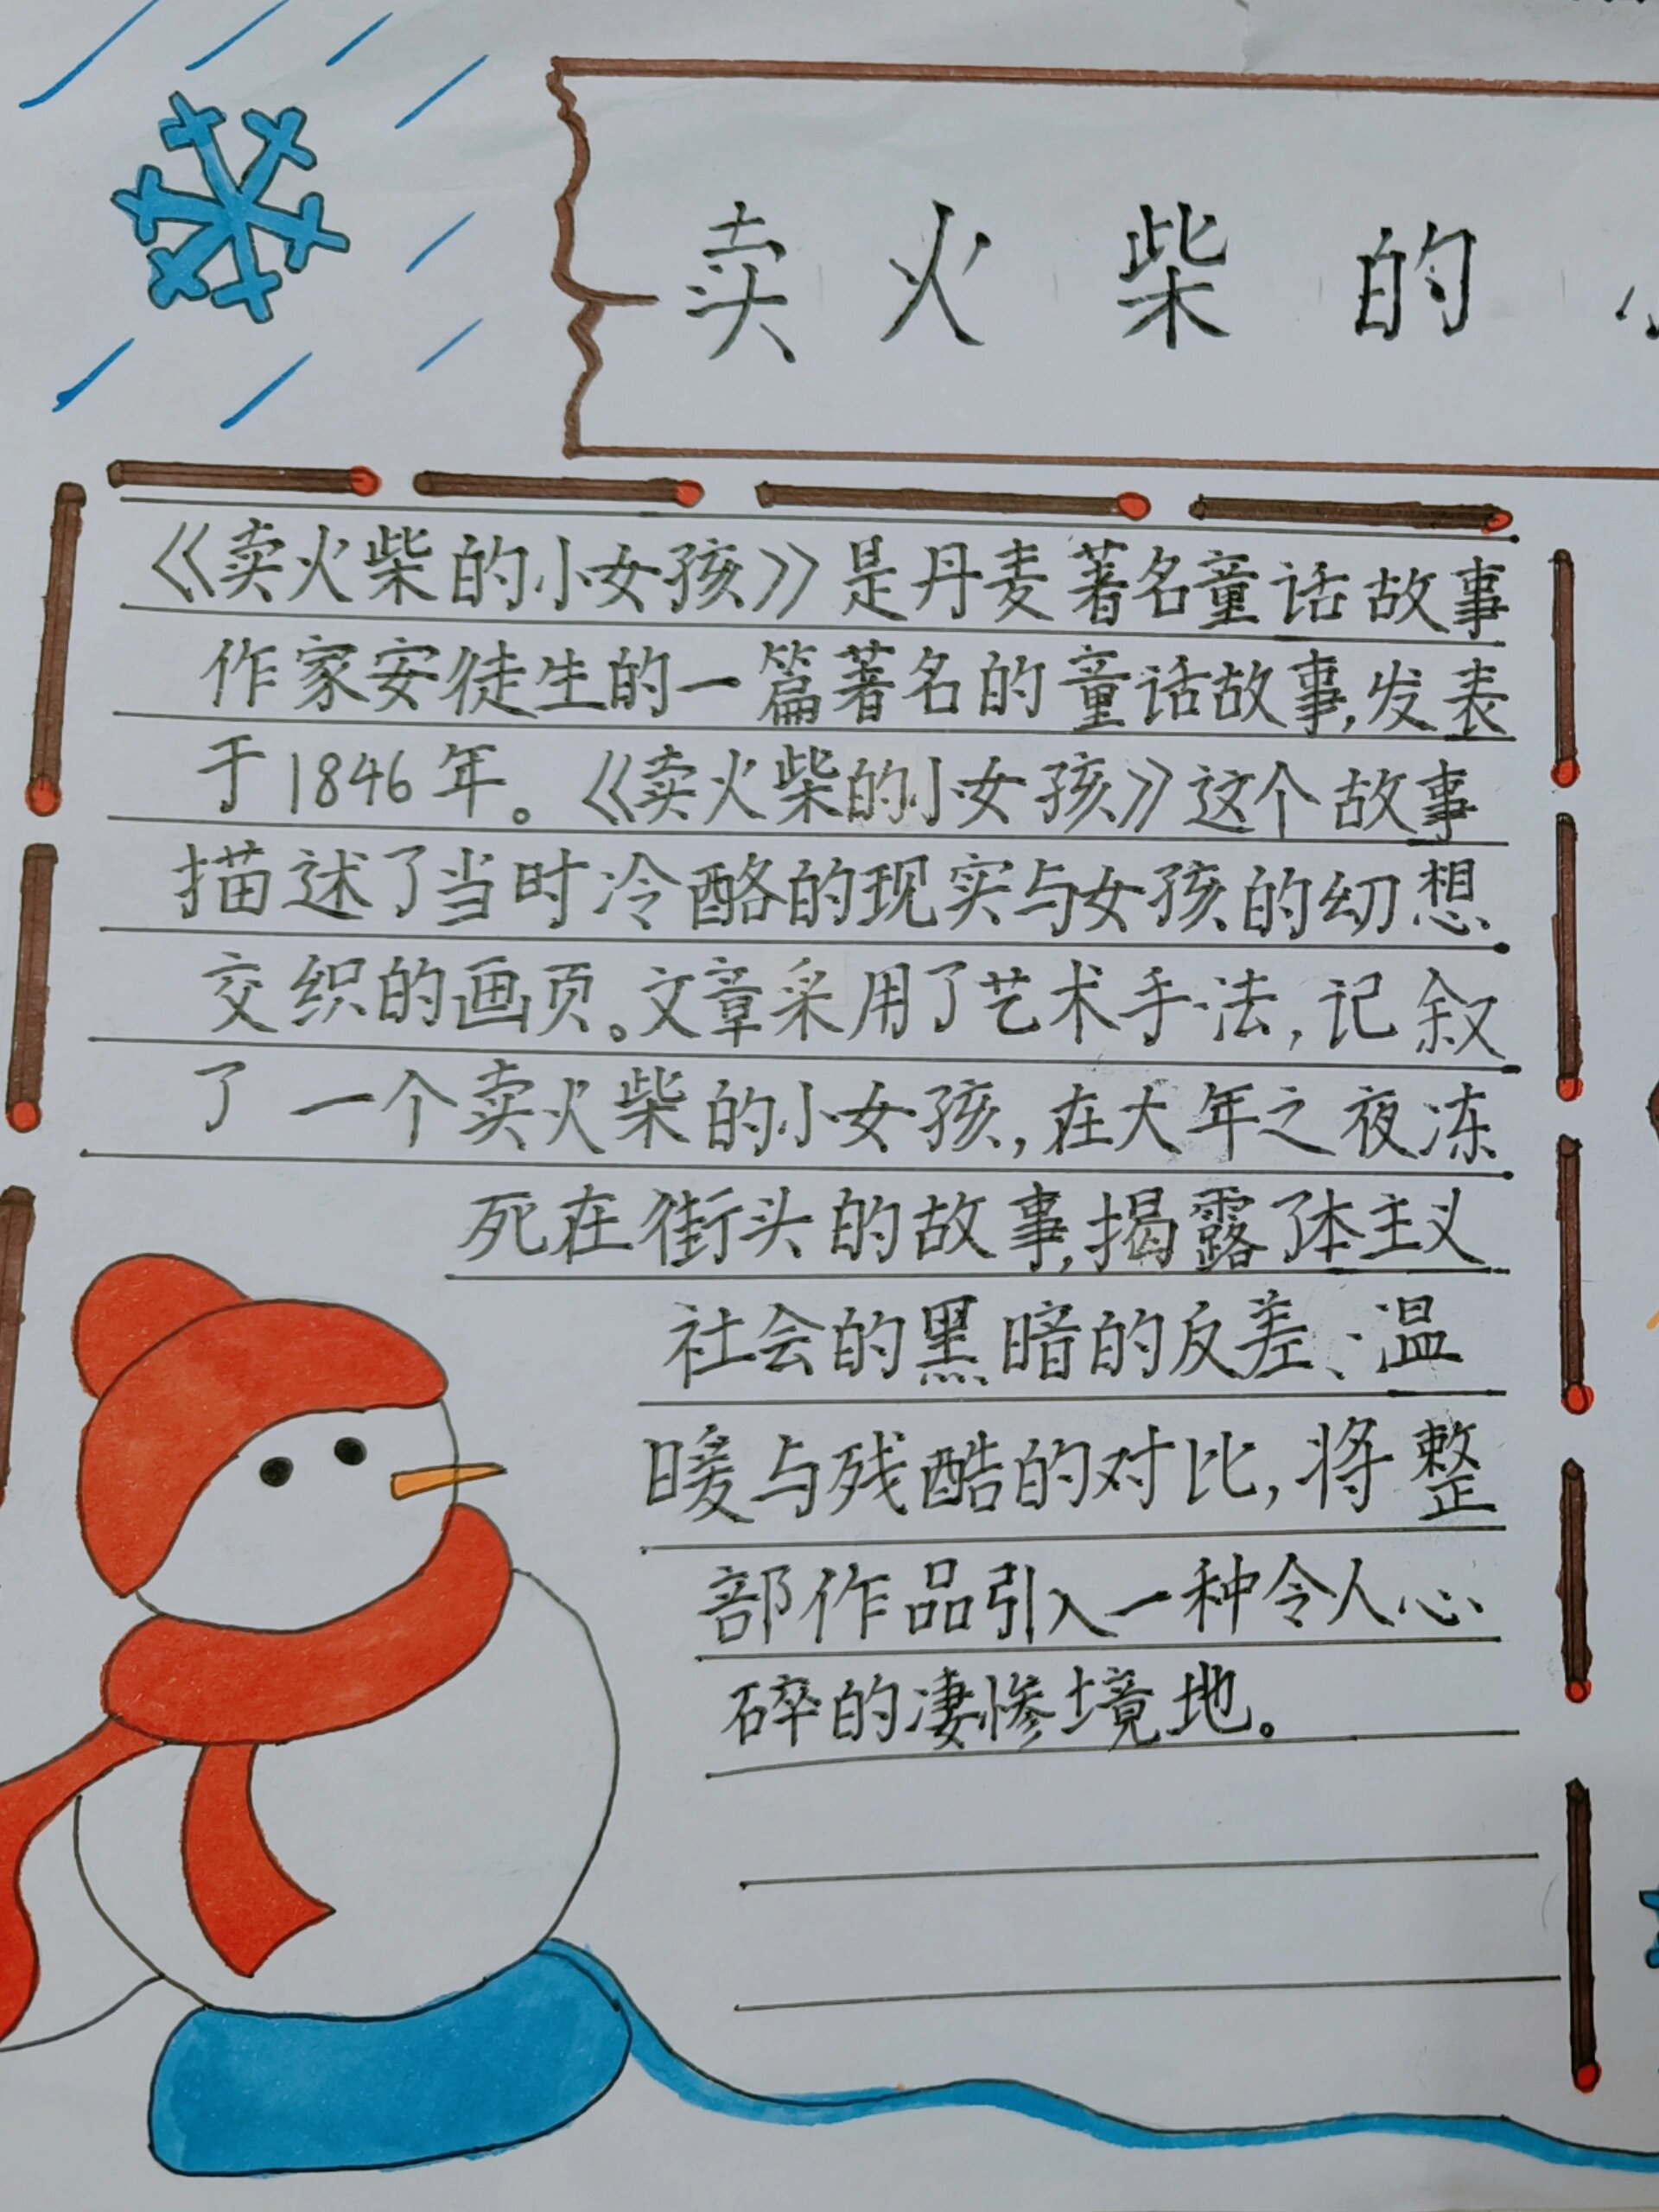 卖火柴的
《卖火柴的小女孩》是丹麦著名童话故事
作家安徒生的一篇著名的童话故事,发表
于1846年。《卖火柴的小女孩》这个故事
描述了当时冷酷的现实与女孩的幻想
交织的画页。文章采用了艺术手法,记叙
了一个卖火柴的小女孩,在大年之夜冻
死在街头的故事,揭露了体主义
社会的黑暗的反差、温
暖与残酷的对比,将整
部作品引入一种令人心
碎的凄惨境地。